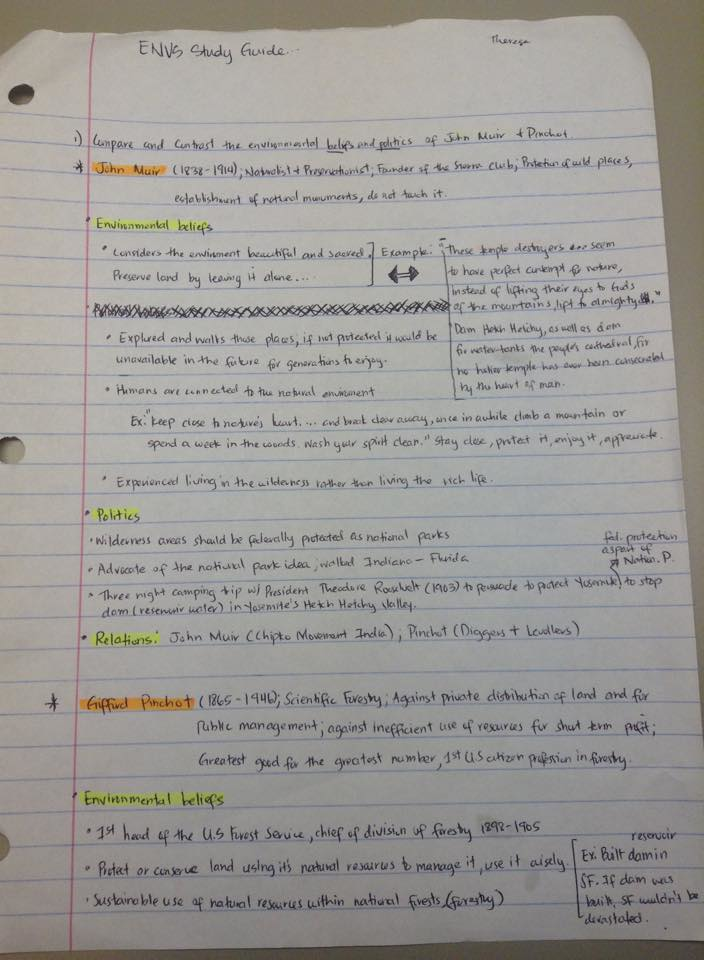 ENVS Study Guide...
Theresa
1) Compare and Contrast the environmental beliefs and politics of John Muir & Pinchot
* John Muir (1838-1914); Naturalist & Preservationist, Founder of the Sierra Club; Protection of wild places,
establishment of natural monuments, do not touch it.
• Environmental beliefs
• Considers the enviroment beautiful and sacred.
Preserve land by leaving it alone....
Example:
"These temple destroyers seem
to have perfect contempt for nature,
instead of lifting their eyes to Gods
of the mountains, lift to almighty $."
"Dam Hetch Hetchy, as well as dam
for water-tanks the people's cathedral, for
no holier temple has ever been consecrated
by the heart of man.
• Explored and walks those places, if not protected it would be
unavailable in the future for generations to enjoy.
• Humans are connected to the natural enviroment
Ex: "keep close to nature's heart.... and break clear away, once in awhile climb a mountain or
spend a week in the woods. Wash your spirit clean." Stay close, protect it, enjoy it, appreciate.
• Experienced living in the wilderness rather than living the rich life.
• Politics
• Wilderness areas should be federally protected as national parks
• Advocate of the national park idea; walked Indiana - Florida
fed. protection
aspect of
Nation. P.
• Three night camping trip w/ President Theodore Roosevelt (1903) to persuade to protect Yosemite; to stop
dam (reservoir water) in Yosemite's Hetch Hetchy Valley.
• Relations: John Muir (Chipko Movement India); Pinchot (Diggers + Levellers)
* Gifford Pinchot (1865-1946); Scientific Forestry; Against private distribution of land and for
Public management; against inefficient use of resources for short term profit;
Greatest good for the greatest number, 1st U.S citizen profession in forestry.
• Environmental beliefs
• 1st head of the U.S Forest Service, chief of division of forestry 1898-1905
• Protect or conserve land using its natural resources to manage it, use it wisely.
• Sustainable use of natural resources within national forests (forestry)
reservoir
Ex: Built dam in
SF. If dam was
built, SF wouldn't be
devastated.